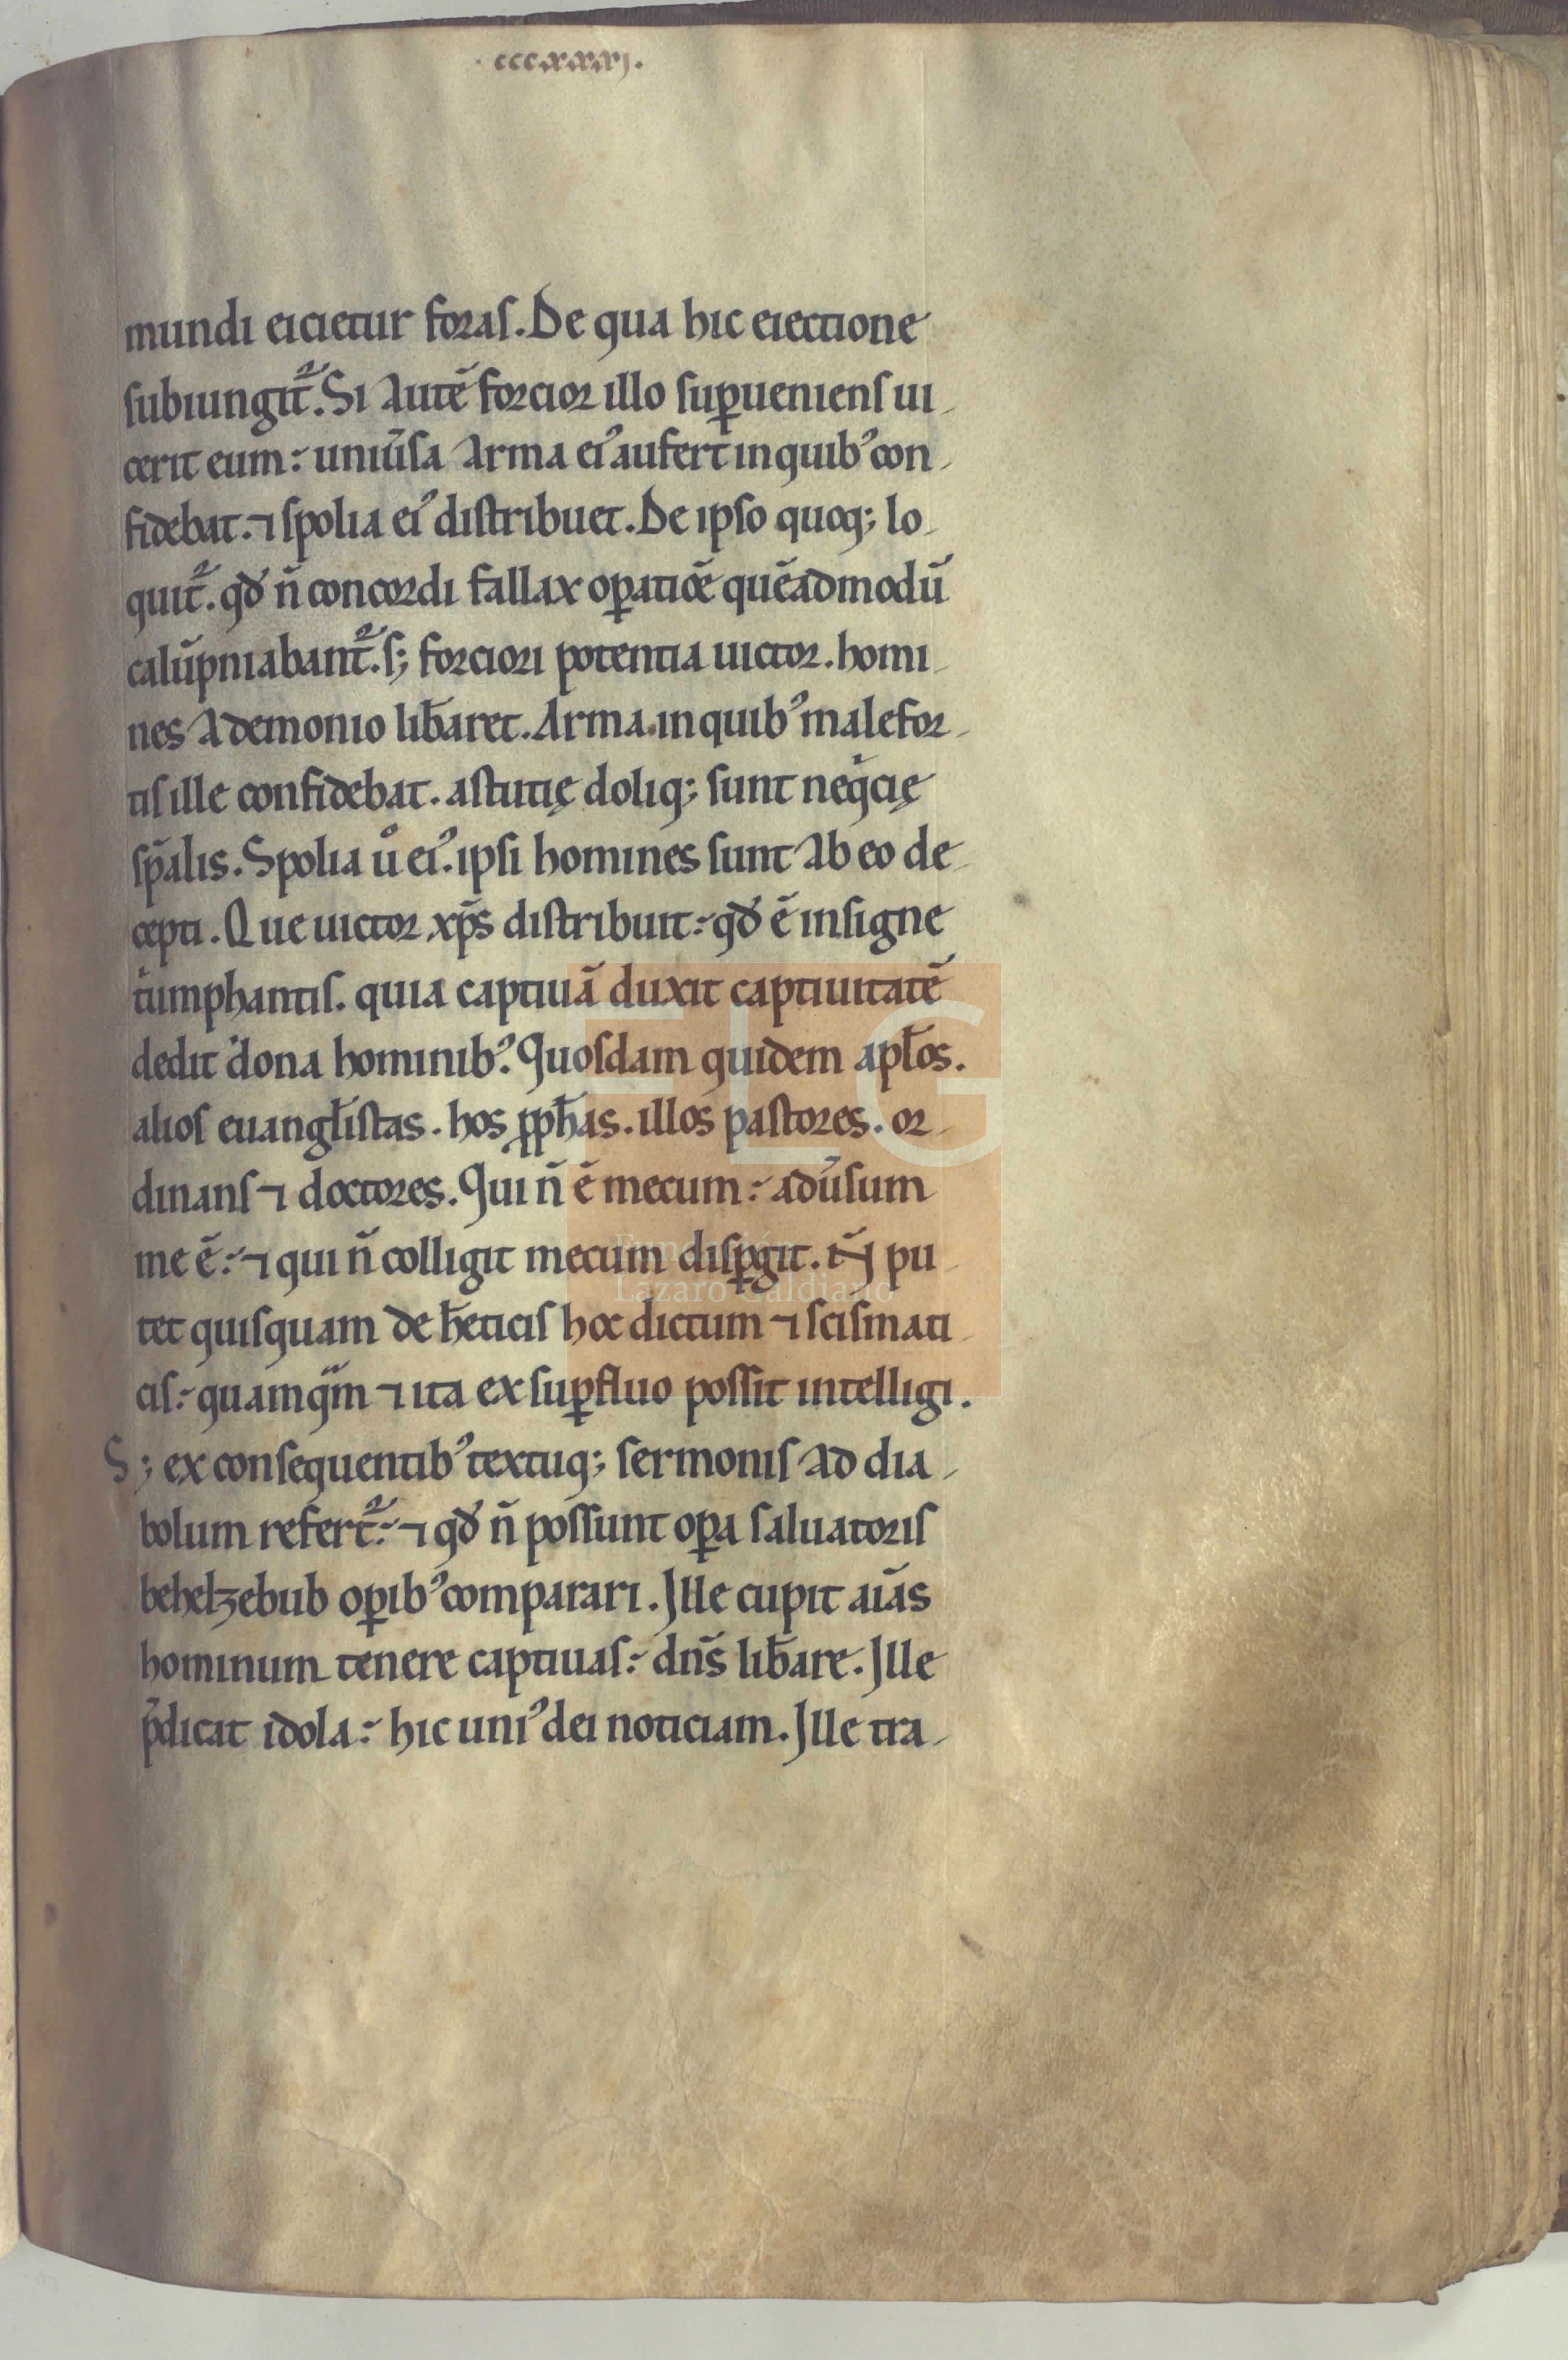 ·cccxxxvj·
mundi eicietur foras. De qua hic eiectione
subiungit᷑. Si autē forcior illo suꝑueniens ui-
cerit eum: uniũsa arma eiꝰ aufert in quibꝰ con-
fidebat. ⁊ spolia eiꝰ distribuet. De ipso quoq; lo-
quit᷑. qđ ñ concordi fallax oꝑatiōe quēadmodū
calūpniabant᷑. s; forciori potentia uictor. homi-
nes a demonio lib̄aret. Arma. in quibꝰ male for-
tis ille confidebat. astutię doliq; sunt neqͥcię
sp̄alis. Spolia uͦ eiꝰ. ipsi homines sunt ab eo de-
cepti. Que uictor xp̄s distribuit: qđ ē insigne
tͥumphantis. quia captiuā duxit captiuitatē
dedit dona hominibꝰ. Quosdam quidem apl̄os.
alios euangl̄istas. hos ꝓph̄as. illos pastores. or-
dinans ⁊ doctores. Qui ñ ē mecum: adũsum
me ē: ⁊ qui ñ colligit mecum disꝑgit. Nͨ pu-
tet quisquam de h̄eticis hoc dictum ⁊ scismati-
cis: quamqͣm ⁊ ita ex suꝑfluo possit intelligi.
S; ex consequentibꝰ textuq; sermonis ad dia-
bolum refert᷑: ⁊ qđ ñ possunt oꝑa saluatoris
behelzebub oꝑibꝰ comparari. Ille cupit aīas
hominum tenere captiuas: dn̄s lib̄are. Ille
p̄dicat idola: hic uniꝰ dei noticiam. Ille tra-
FLG
Fundación
Lázaro Galdiano